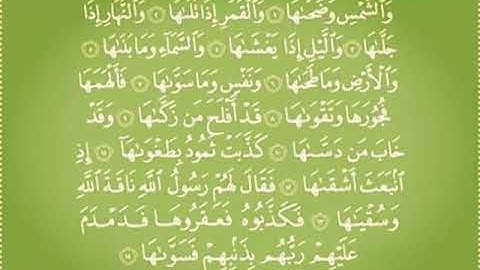 وَٱلشَّمۡسِ وَضُحَىٰهَا ١ وَٱلۡقَمَرِ إِذَا تَلَىٰهَا ٢ وَٱلنَّهَارِ إِذَا
جَلَّىٰهَا ٣ وَٱلَّيۡلِ إِذَا يَغۡشَىٰهَا ٤ وَٱلسَّمَآءِ وَمَا بَنَىٰهَا ٥
وَٱلۡأَرۡضِ وَمَا طَحَىٰهَا ٦ وَنَفۡسٖ وَمَا سَوَّىٰهَا ٧ فَأَلۡهَمَهَا
فُجُورَهَا وَتَقۡوَىٰهَا ٨ قَدۡ أَفۡلَحَ مَن زَكَّىٰهَا ٩ وَقَدۡ
خَابَ مَن دَسَّىٰهَا ١٠ كَذَّبَتۡ ثَمُودُ بِطَغۡوَىٰهَآ ١١ إِذِ
ٱنۢبَعَثَ أَشۡقَىٰهَا ١٢ فَقَالَ لَهُمۡ رَسُولُ ٱللَّهِ نَاقَةَ ٱللَّهِ
وَسُقۡيَٰهَا ١٣ فَكَذَّبُوهُ فَعَقَرُوهَا فَدَمۡدَمَ
عَلَيۡهِمۡ رَبُّهُم بِذَنۢبِهِمۡ فَسَوَّىٰهَا ١٤